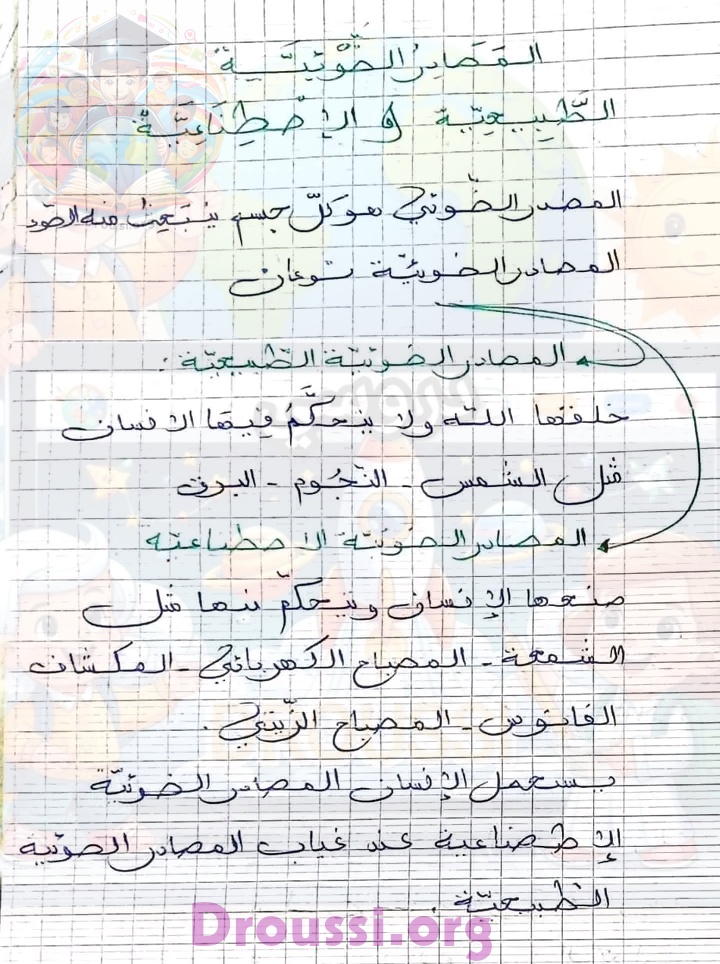 المَصَادِرُ الضَّوْئِيَّــة
الطَّبِيــعِيّــة و الإِصْطِنَاعِيَّة
المصدر الضّوئي هو كلّ جسم ينبَعِثُ منه الضوء
المصادر الضوئيّة نوعان
المصادر الضوئيّة الطّبيعيّة :
خلقتها اللّه ولا يتحكَّمُ فِيهَا الإنسان
مثل الشّمس - النّجُوم - البرق
المصادر الضوئيّة الاصطناعية
صنعها الإنسان ويتحكّم بها مثل
الشمعة - المصباح الكهربائي - المكشاف
الفانوس - المصباح الزّيتي .
يستعمل الإنسان المصادر الضوئيّة
الإصطناعية عند غياب المصادر الضوئية
الطّبيعيّة .
Droussi.org